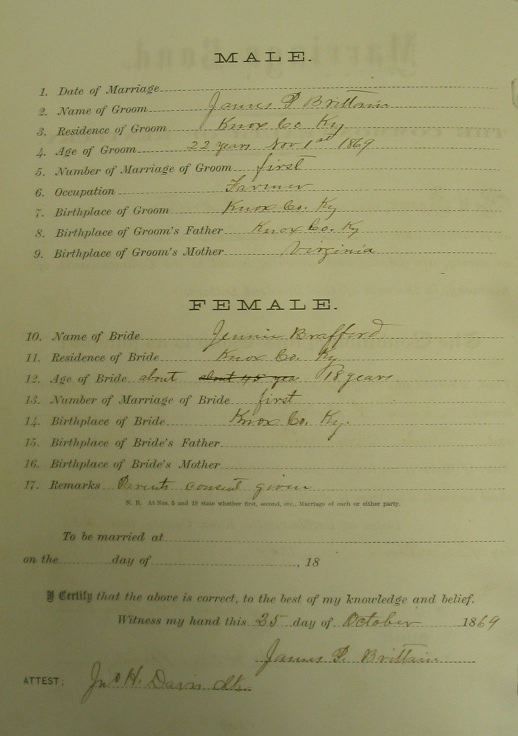 MALE.
1. Date of Marriage
2. Name of Groom James P Brittain
3. Residence of Groom Knox Co Ky
4. Age of Groom 22 years Nov 1st 1869
5. Number of Marriage of Groom first
6. Occupation Farmer
7. Birthplace of Groom Knox Co. Ky
8. Birthplace of Groom's Father Knox Co. Ky
9. Birthplace of Groom's Mother Virginia
FEMALE.
10. Name of Bride Jennie Brafford
11. Residence of Bride Knox Co. Ky
12. Age of Bride about 18 years
13. Number of Marriage of Bride first
14. Birthplace of Bride Knox Co. Ky.
15. Birthplace of Bride's Father
16. Birthplace of Bride's Mother
17. Remarks Parents consent given
N. B. At Nos. 5 and 13 state whether first, second, etc., Marriage of each or either party.
To be married at
on the day of , 18
I Certify that the above is correct, to the best of my knowledge and belief.
Witness my hand this 25 day of October 1869
James P. Brittain
ATTEST: Jno H. Davis clk.